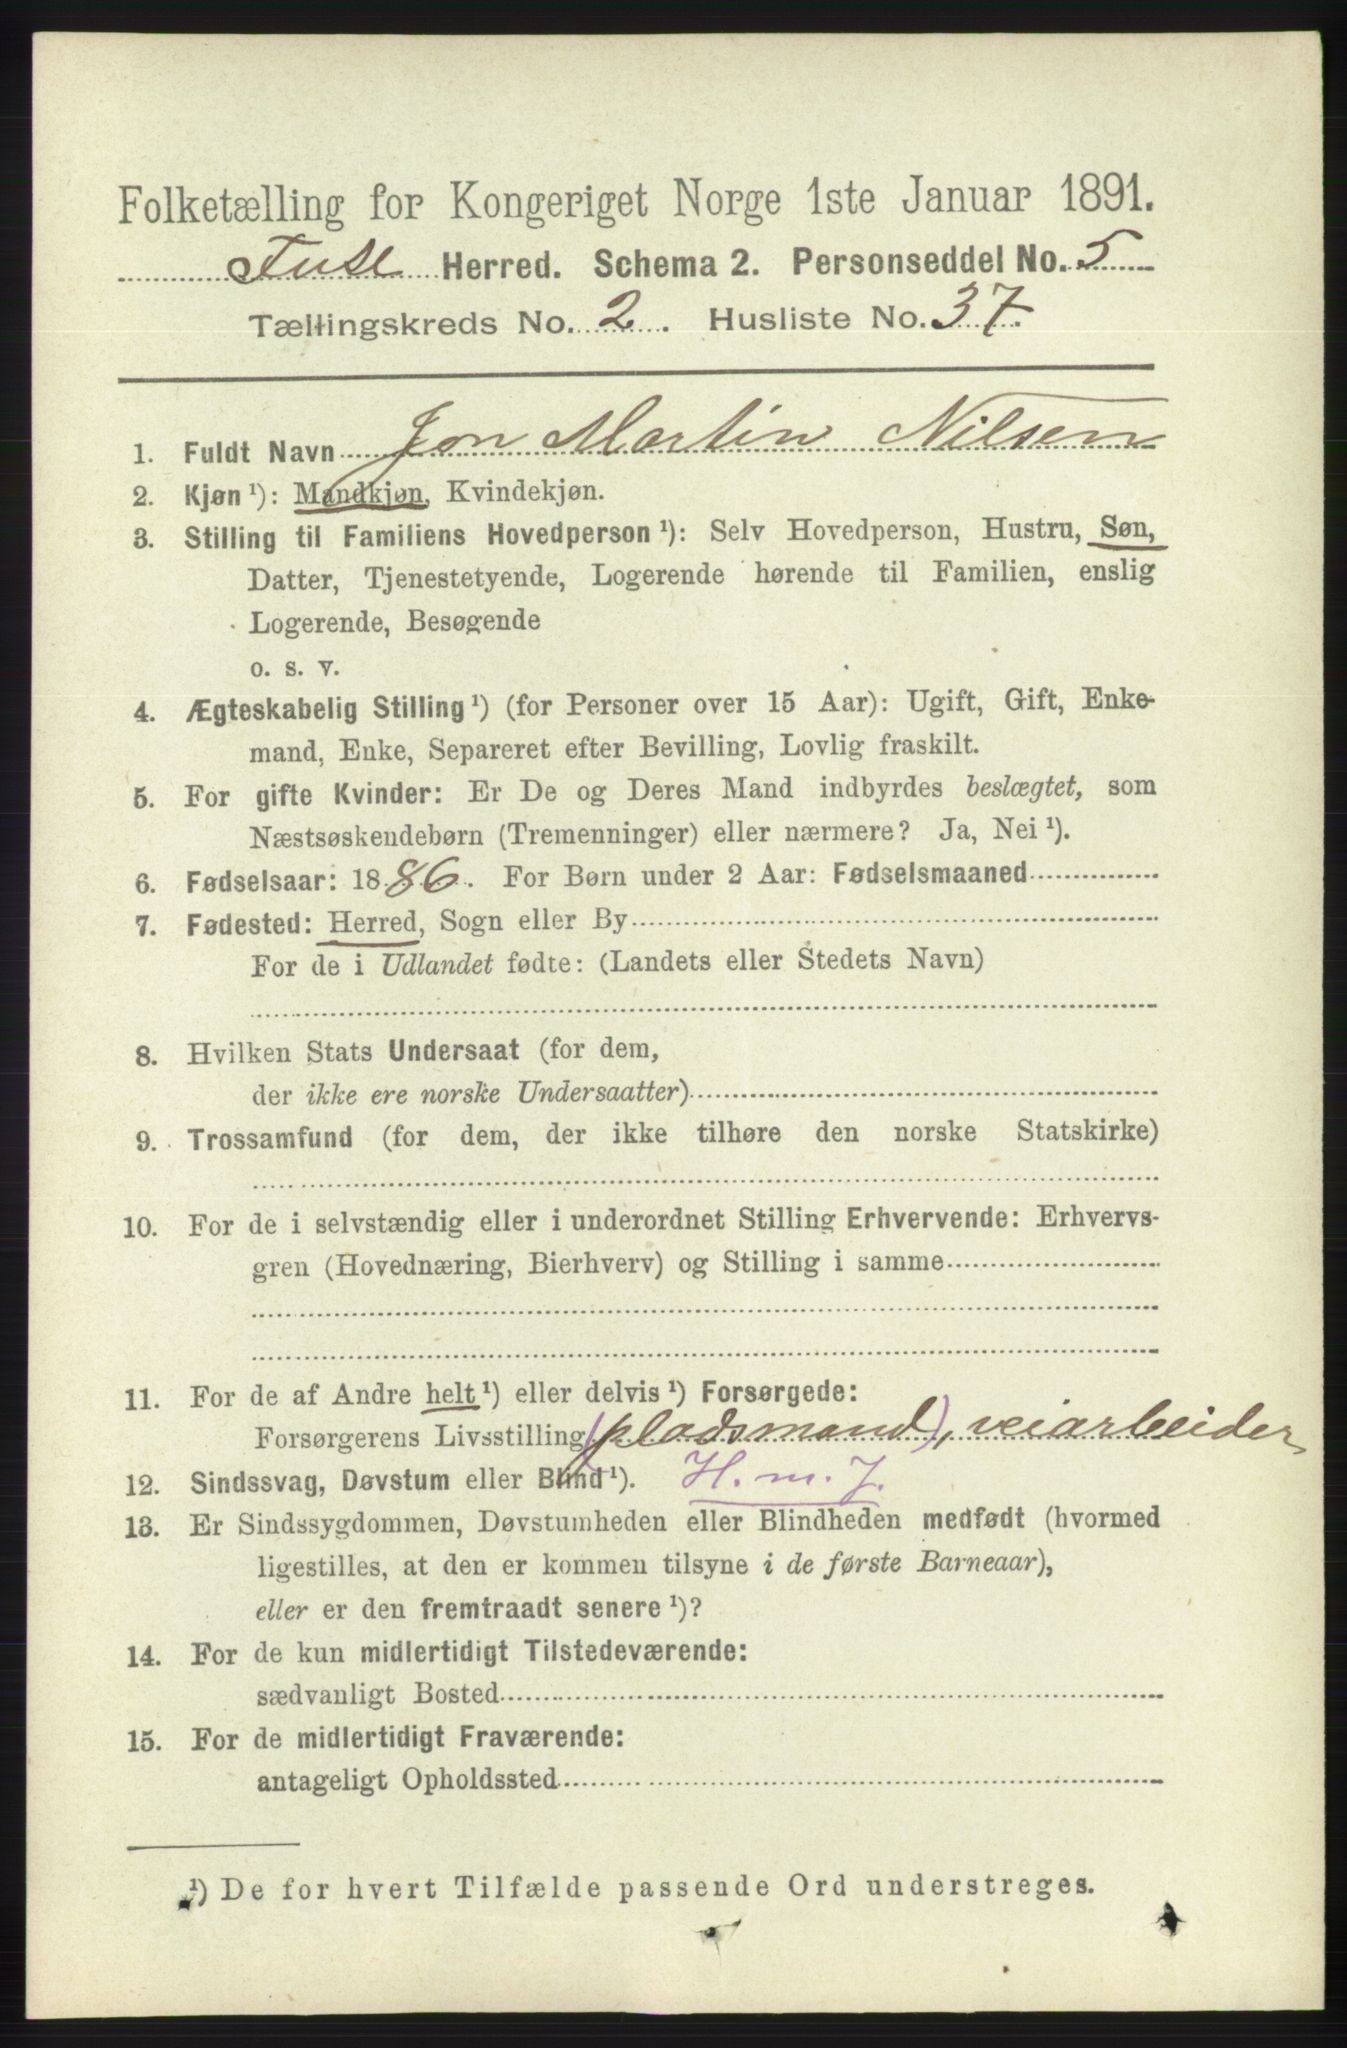 Folketælling for Kongeriget Norge 1ste Januar 1891.
Fuse Herred. Schema 2. Personseddel No. 5
Tællingskreds No. 2. Husliste No. 37.
1. Fuldt Navn Jon Martin Nilsen
2. Kjøn ¹): Mandkjøn, Kvindekjøn.
3. Stilling til Familiens Hovedperson ¹): Selv Hovedperson, Hustru, Søn,
Datter, Tjenestetyende, Logerende hørende til Familien, enslig
Logerende, Besøgende
o. s. v.
4. Ægteskabelig Stilling ¹) (for Personer over 15 Aar): Ugift, Gift, Enke-
mand, Enke, Separeret efter Bevilling, Lovlig fraskilt.
5. For gifte Kvinder: Er De og Deres Mand indbyrdes beslægtet, som
Næstsøskendebørn (Tremenninger) eller nærmere? Ja, Nei ¹).
6. Fødselsaar: 1886. For Børn under 2 Aar: Fødselsmaaned
7. Fødested: Herred, Sogn eller By
For de i Udlandet fødte: (Landets eller Stedets Navn)
8. Hvilken Stats Undersaat (for dem,
der ikke ere norske Undersaatter)
9. Trossamfund (for dem, der ikke tilhøre den norske Statskirke)
10. For de i selvstændig eller i underordnet Stilling Erhvervende: Erhvervs-
gren (Hovednæring, Bierhverv) og Stilling i samme
11. For de af Andre helt ¹) eller delvis ¹) Forsørgede:
Forsørgerens Livsstilling (pladsmand), veiarbeider
12. Sindssvag, Døvstum eller Blind ¹). H. m. J.
13. Er Sindssygdommen, Døvstumheden eller Blindheden medfødt (hvormed
ligestilles, at den er kommen tilsyne i de første Barneaar),
eller er den fremtraadt senere ¹)?
14. For de kun midlertidigt Tilstedeværende:
sædvanligt Bosted
15. For de midlertidigt Fraværende:
antageligt Opholdssted
¹) De for hvert Tilfælde passende Ord understreges.